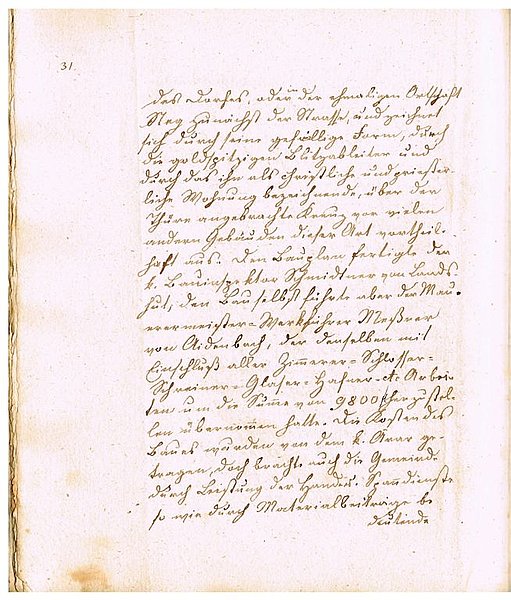 31.
des Dorfes, oder in der ehmaligen Ortschaft
Steg zunächst der Strasse, und zeichnet
sich durch seine gefällige Form, durch
die goldspitzigen Blitzableiter und
durch das ihn als christliche und priester-
liche Wohnung bezeichnende, über der
Thüre angebrachte Kreuz vor vielen
andern Gebäuden dieser Art vortheil-
haft aus. Den Bauplan fertigte der
k. Bauinspektor Schmidtner von Lands-
hut, den Bau selbst führte aber der Mau-
rermeister-Werkführer Meßner
von Aidenbach, der denselben mit
Einschluß aller Zimmerer- Schlosser-
Schreiner- Glaser- Hafner- etc. Arbei-
ten um die Summe von 9800 f herzustel-
len übernommen hatte. Die Kosten des
Baues wurden von dem k. Ärar ge-
tragen, doch brachte auch die Gemeinde
durch Leistung der Hand- u. Spanndienste
so wie durch Materialbeiträge be
deutende